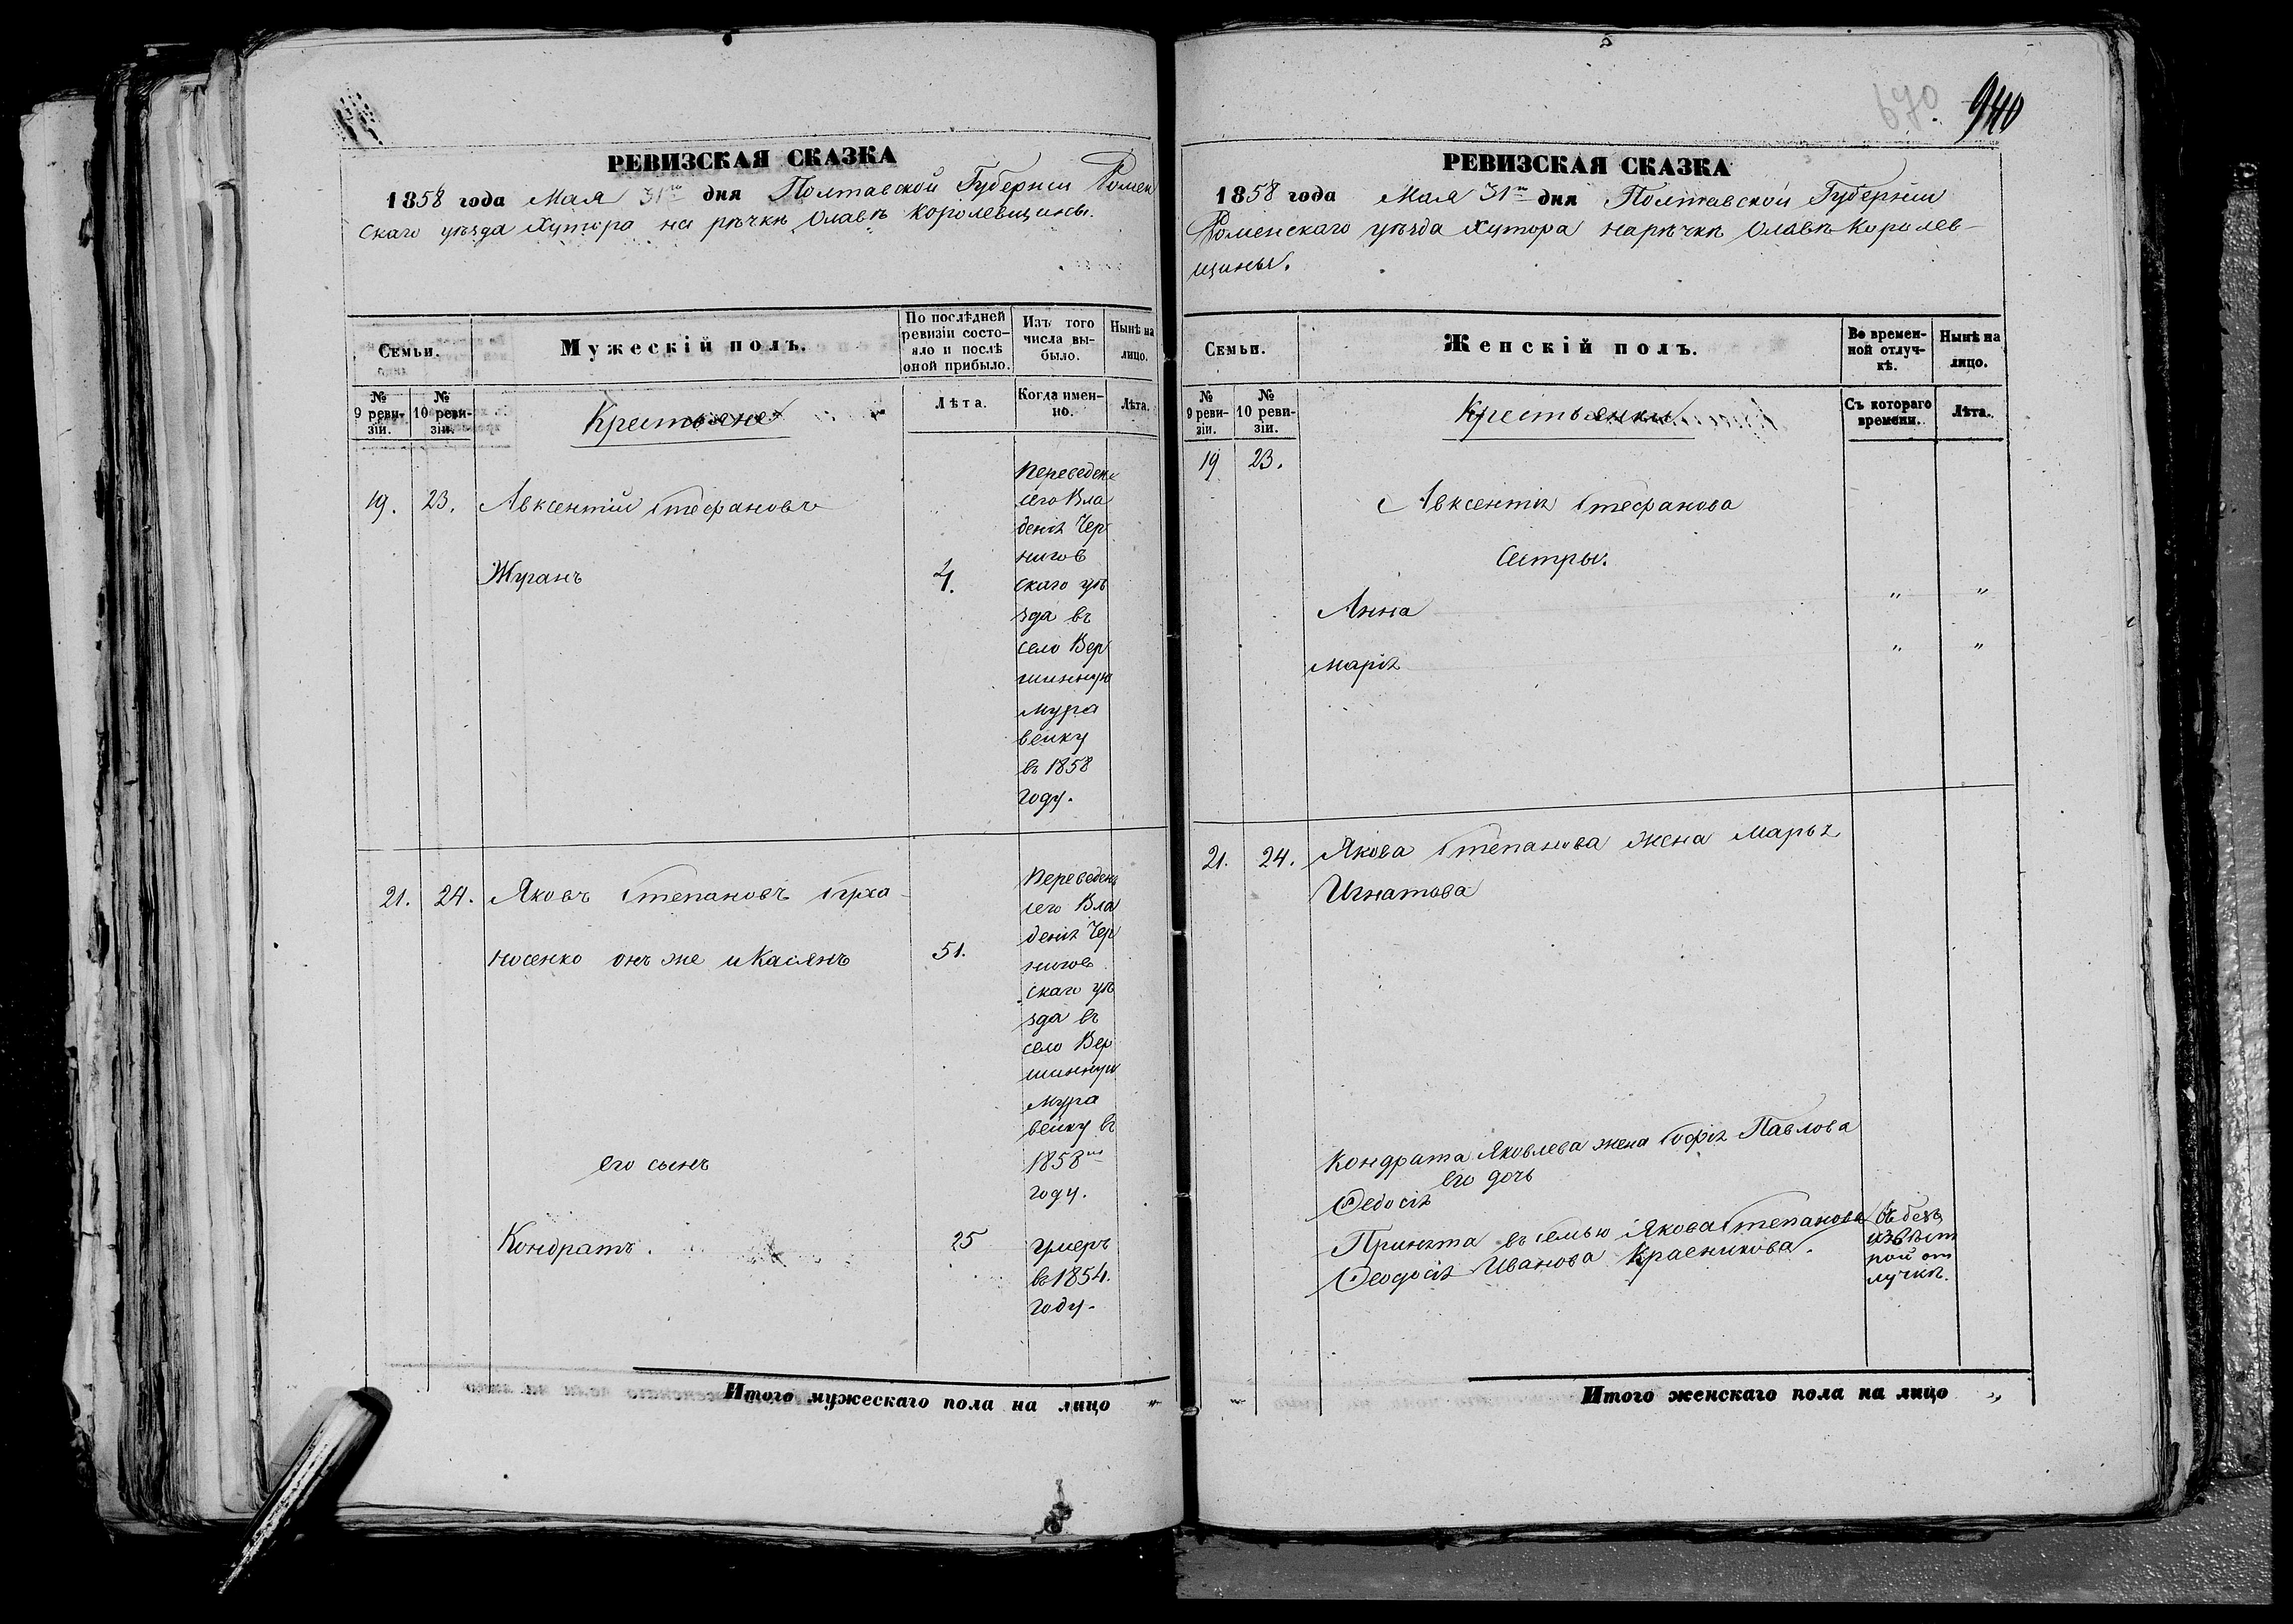 РЕВИЗСКАЯ СКАЗКА
1858 года Мая 31го дня Полтавской Губерніи Ромен
скаго уѣзда Хутора на рѣчкѣ Олавѣ Королевщины.
Семьи.
Мужескій полъ.
По послѣдней
ревизіи состо-
яло и послѣ
оной прибыло.
Изъ того
числа вы-
было.
Нынѣ на
лицо.
№
9 реви-
зіи.
№
10 реви-
зіи.
Крестьяне
Лѣта.
Когда имен-
но.
Лѣта.
19. 23. Авксентій Стефановъ
Журанъ 4.
Переведенъ
сего Вла
денія Чер
нигов
скаго уѣ
зда въ
село Вер
шинную
Мура
вейку
въ 1858
году.
21. 24. Яковъ Степановъ
носенко онъ же и Касянъ 51.
Переведенъ
сего Вла
денія Чер
нигов
скаго уѣ
зда въ
село Вер
шинную
Мура
вейку въ
1858мъ
году.
его сынъ
Кондратъ. 25
умеръ
въ 1854.
году.
Итого мужескаго пола на лицо „
670. 940
РЕВИЗСКАЯ СКАЗКА
1858 года Мая 31го дня Полтавской Губерніи
Роменскаго уѣзда Хутора на рѣчкѣ Олавѣ Королев-
щины.
Семьи.
Женскій полъ.
Во времен-
ной отлуч-
кѣ.
Нынѣ на
лицо.
№
9 реви-
зіи.
№
10 реви-
зіи.
Крестьянки
Съ котораго
времени.
Лѣта.
19 23.
Авксентія Стефанова
Сестры.
Анна „ „
Марія „ „
21. 24. Якова Степанова жена Марья
Игнатова
Кондрата Яковлева жена Софія Павлова
его дочь
Федосія
Принята въ семью Якова Степанова
Феодосія Иванова Красникова.
Въ безъ
извѣст
ной от
лучкѣ.
Итого женскаго пола на лицо „